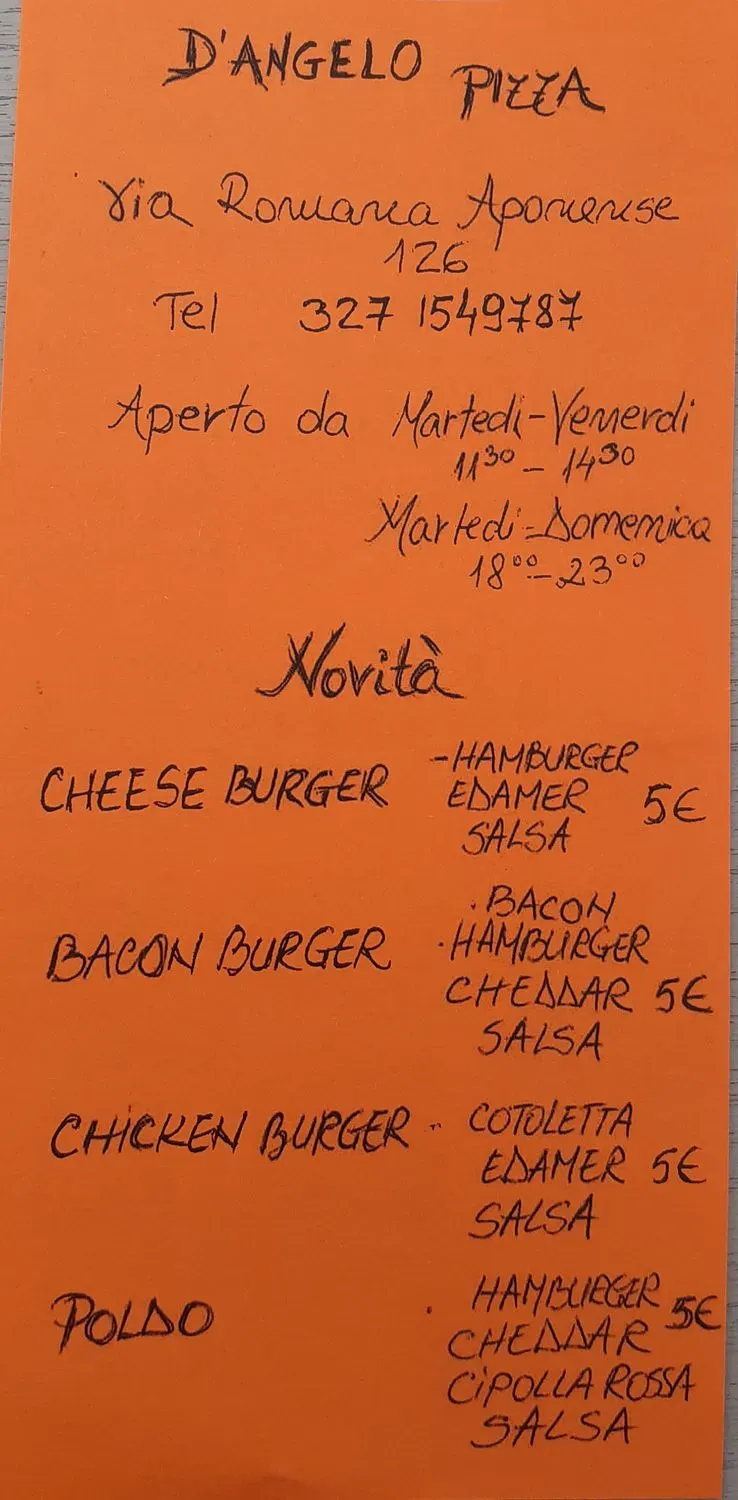 D'ANGELO PIZZA
Via Romana Aponense
126
Tel 327 1549787
Aperto da Martedi-Venerdi
11³⁰ - 14³⁰
Martedi-Domenica
18⁰⁰-23⁰⁰
Novità
CHEESE BURGER -HAMBURGER
EDAMER 5€
SALSA
BACON BURGER · BACON
· HAMBURGER
CHEDDAR 5€
SALSA
CHICKEN BURGER - COTOLETTA
EDAMER 5€
SALSA
POLDO · HAMBURGER 5€
CHEDDAR
CIPOLLA ROSSA
SALSA